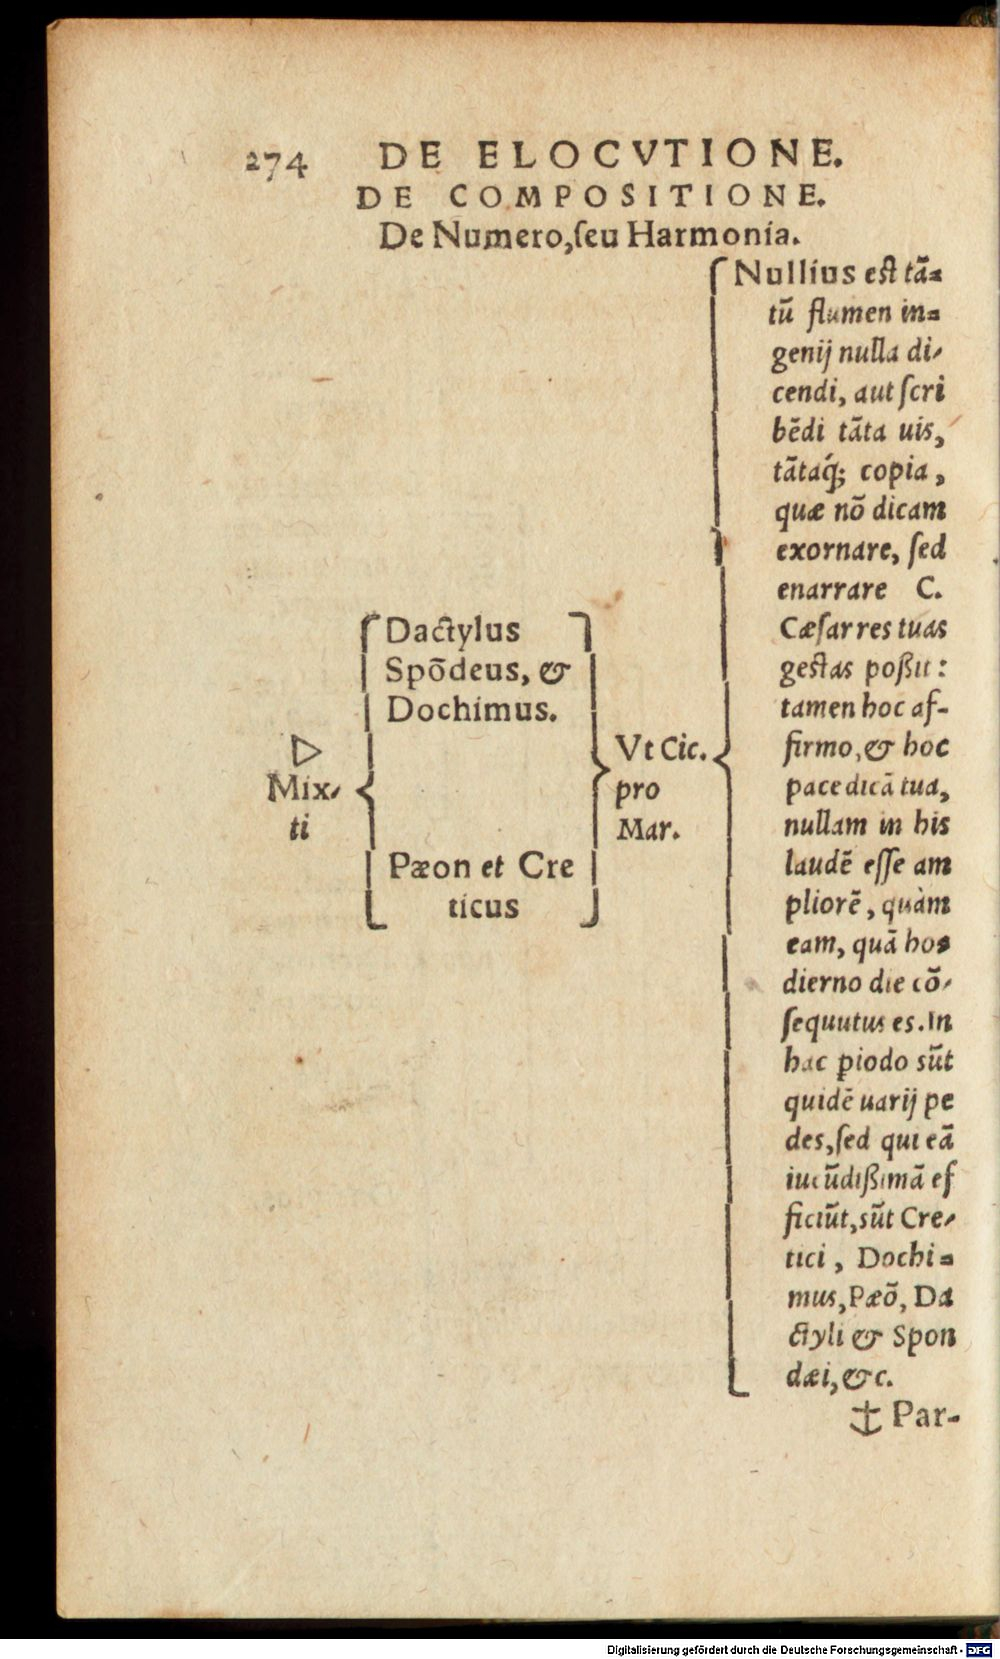 274 DE ELOCVTIONE.
DE COMPOSITIONE.
De Numero, ſeu Harmonia.
▷
Mix-
ti
Dactylus
Spōdeus, &
Dochimus.
Pæon et Cre
ticus
Vt Cic.
pro
Mar.
Nullius eſt tā=
tū flumen in=
genij nulla di-
cendi, aut ſcri
bēdi tāta uis,
tātaq́; copia,
quæ nō dicam
exornare, ſed
enarrare C.
Cæſar res tuas
geſtas poßit:
tamen hoc af-
firmo, & hoc
pace dicā tua,
nullam in his
laudē eſſe am
pliorē, quàm
eam, quā hos
dierno die cō-
ſequutus es. In
hac ꝑiodo sūt
quidē uarij pe
des, ſed qui eā
iucūdißimā ef
ficiūt, sūt Cre-
tici, Dochi=
mus, Pæō, Da
ctyli & Spon
dæi, &c.
⚓ Par-
Digitalisierung gefördert durch die Deutsche Forschungsgemeinschaft - DFG